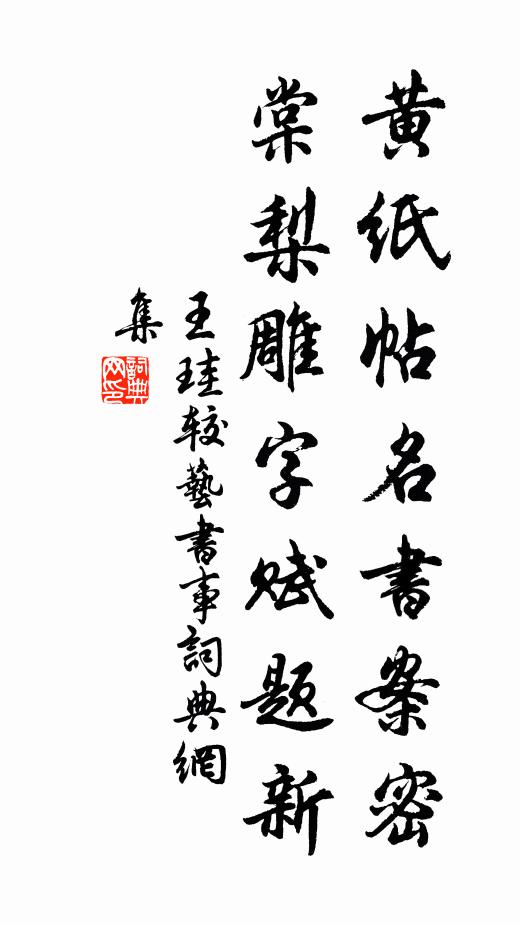 黃紙帖名書案密
棠梨雕字賦題新
王珪較藝書事詞典網
集
詞典網印